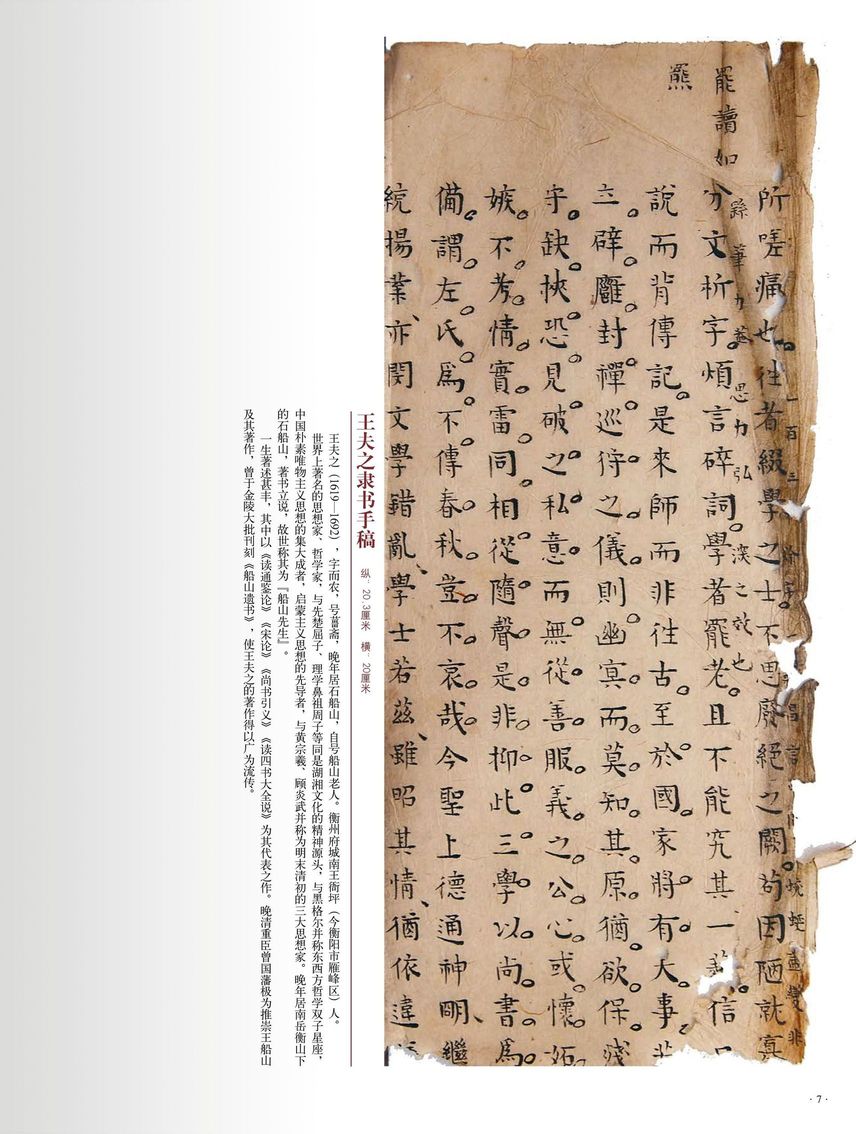 罷讀如
羆
所嗟痛也。往者綴學之士不思廢絕之闕。苟因陋就寡
力思力弘深之效也
分文析字。煩言碎詞。學者罷老。且不能究其一藝。信
說而背傳記。是來師而非往古。至於國家。將有大事。
立辟廱。封禪。巡狩之儀。則幽冥而莫知其原。猶欲保殘
守缺。挾恐見破之私意。而無從善服義之公心。或懷妬
嫉。不考情實。雷同相從。隨聲是非。抑此三學。以尚書爲
備。謂左氏爲不傳春秋。豈不哀哉。今聖上德通神明、繼
統揚業、亦閔文學錯亂、學士若茲、雖昭其情、猶依違
王夫之隶书手稿 纵：20.3厘米 横：20厘米
王夫之（1619—1692），字而农，号薑斋，晚年居石船山，自号船山老人。衡州府城南王衙坪（今衡阳市雁峰区）人。
世界上著名的思想家、哲学家，与先楚屈子、理学鼻祖周子等同是湖湘文化的精神源头，与黑格尔并称东西方哲学双子星座，
中国朴素唯物主义思想的集大成者，启蒙主义思想的先导者，与黄宗羲、顾炎武并称为明末清初的三大思想家。晚年居南岳衡山下
的石船山，著书立说，故世称其为『船山先生』。
一生著述甚丰，其中以《读通鉴论》《宋论》《尚书引义》《读四书大全说》为其代表之作。晚清重臣曾国藩极为推崇王船山
及其著作，曾于金陵大批刊刻《船山遗书》，使王夫之的著作得以广为流传。
·7·